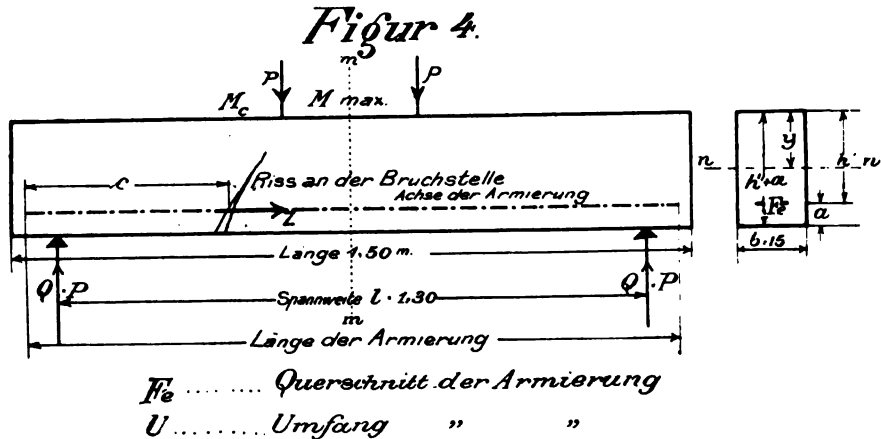 Figur 4.
m
P P
Mc M max.
y
n h' n
c Riss an der Bruchstelle h'+a
Achse der Armierung Fe
Z a
b.15
Länge 1.50 m.
Q.P Q.P
Spannweite l. 1.30
m
Länge der Armierung
Fe ........ Querschnitt der Armierung
U ........ Umfang " "